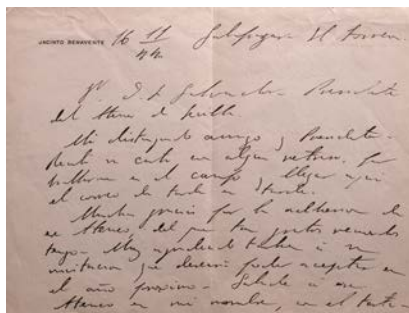 JACINTO BENAVENTE 16 11 44 Galapagar El Torreón
Sr. D. Presidente
del Ateneo de Sevilla.
Mi distinguido amigo y Presidente.
Recibí su carta con algún retraso, por
hallarme en el campo y llegar aquí
el correo de tarde en tarde.
Muchas gracias por la adhesión de
ese Ateneo, del que tan gratos recuerdos
tengo. Muy agradecido también a su
invitación que desearé poder aceptar en
el año próximo. Salude a ese
Ateneo en mi nombre, con el